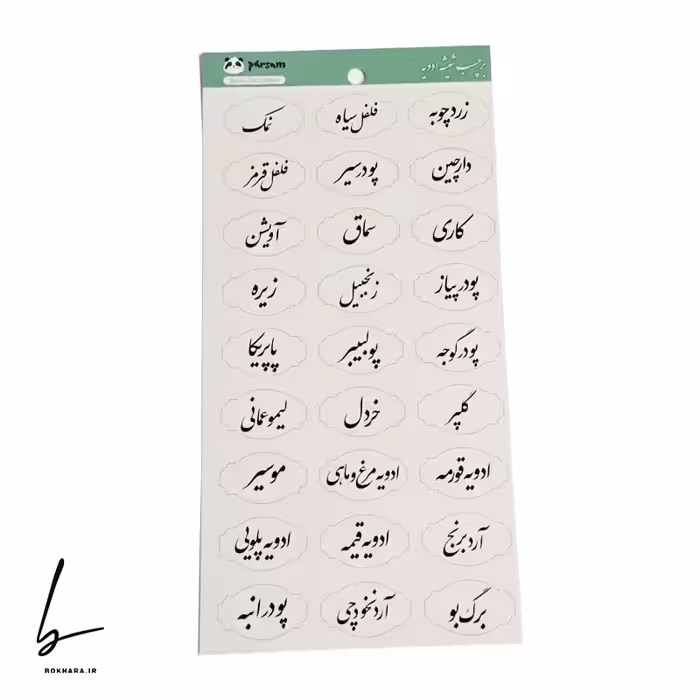 parsam
برچسب شیشه ادویه
زردچوبه فلفل سیاه نمک
دارچین پودر سیر فلفل قرمز
کاری سماق آویشن
پودر پیاز زنجبیل زیره
پودر گوجه پول بیبر پاپریکا
گلپر خردل لیمو عمانی
ادویه قورمه ادویه مرغ و ماهی موسیر
آرد برنج ادویه قیمه ادویه پلویی
برگ بو آرد نخودچی پودر انبه
BOKHARA.IR